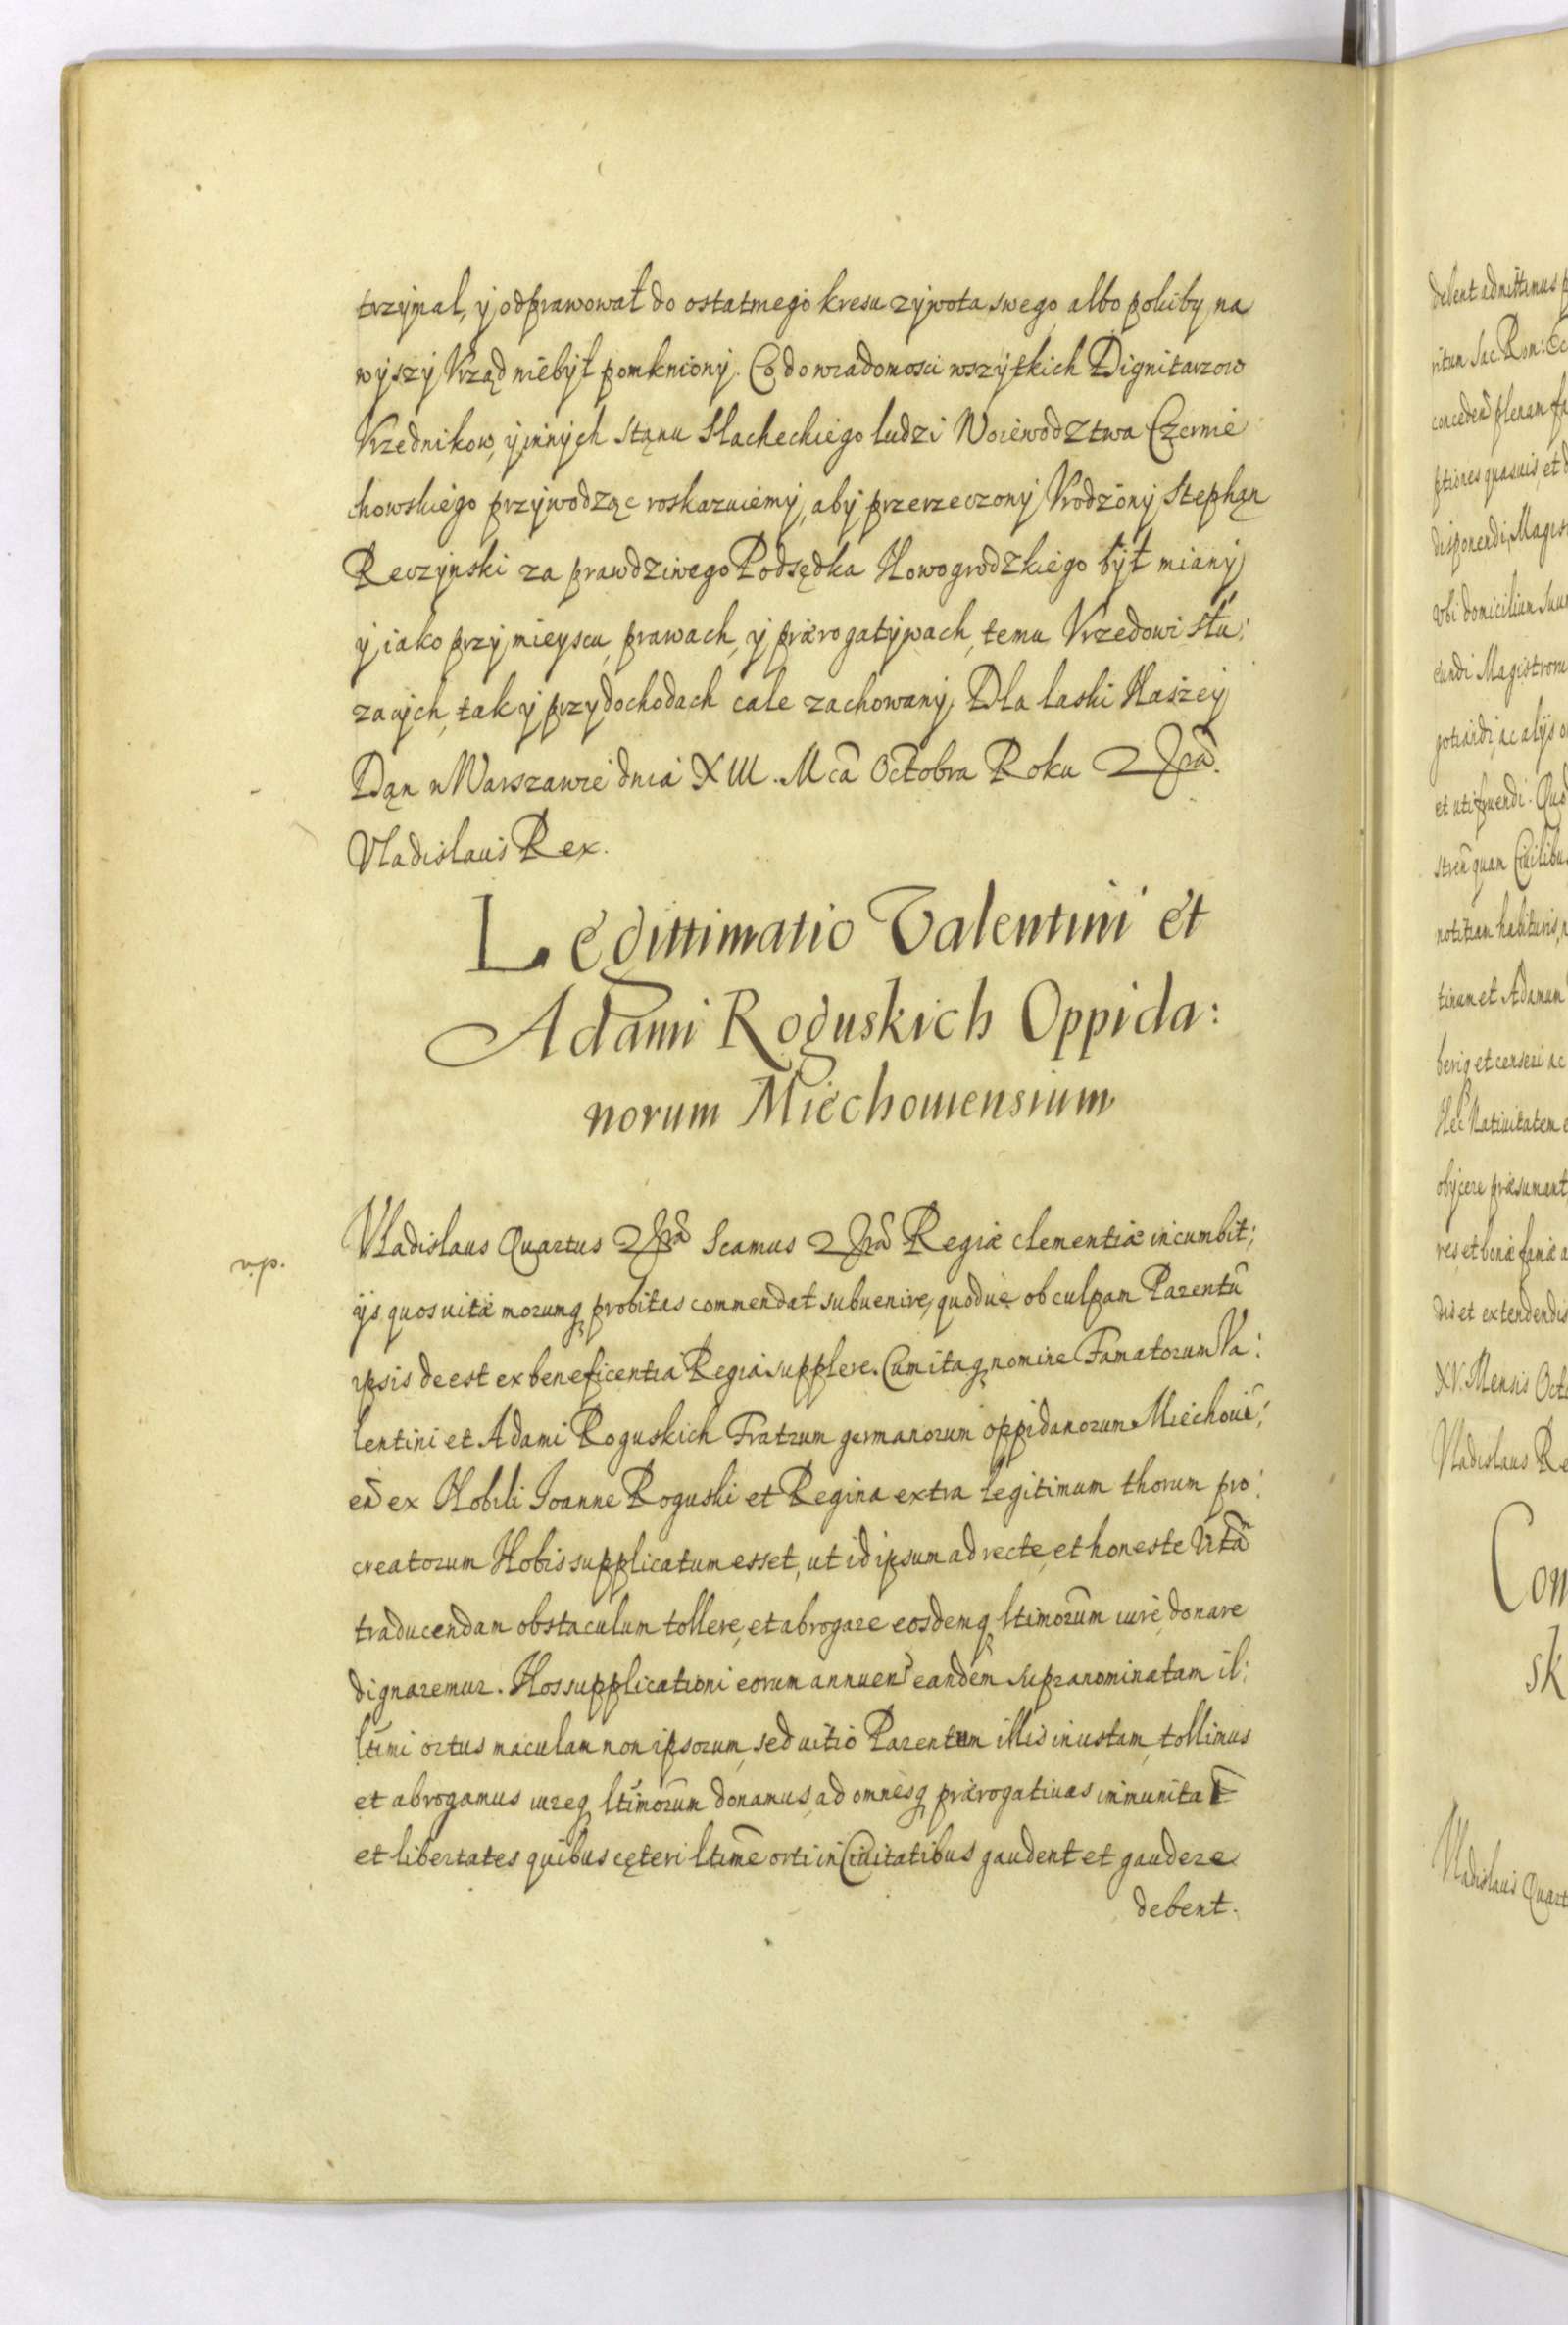 trzymał, y odprawował do ostatniego kresu zywota swego albo pokiby na
wyszy Vrząd niebył pomkniony. Co do wiadomosci wszytkich Dignitarzow
Vrzednikow, y innych stąnu Slacheckiego ludzi Woiewodztwa Czernie
chowskiego przywodząc roskazuiemy, aby przerzeczony Vrodzony Stephąn
Reczynski za prawdziwego Podsędka Nowogrodzkiego był miany
y iako przy mieyscu, prawach, y prærogatywach, temu Vrzedowi słu:
zacych, tak y przy dochodach cale zachowany, Dla laski Naszey
Dąn w Warszawie dnia XIII. Mca Octobra Roku
Vladislaus Rex.
Legittimatio Valentini et
Adami Roguskich Oppida:
norum Miechouiensium
v.p.
Vladislaus Quartus Scamus Regiæ clementiæ incumbit;
ijs quos uitæ morumq probitas commendat subuenire, quodue ob culpam Parentū
ipsis deest ex beneficentia Regia supplere. Cum itaq nomine Famatorum Va:
lentini et Adami Roguskich Fratrum germanorum oppidanorum Miechoui:
en ex Nobili Joanne Roguski et Regina extra legitimum thorum pro:
creatorum Nobis supplicatum esset, ut id ipsum ad recte et honeste uitā
traducendam obstaculum tollere, et abrogare eosdemq ltimorum iure donare
dignaremur. Nos supplicationi eorum annuen eandem supranominatam il:
ltimi ortus maculam non ipsorum, sed uitio Parentum illis inustam, tollimus
et abrogamus iureq ltimorum donamus, ad omnesq prærogatiuas immunitat
et libertates quibus cęteri ltime orti in Ciuitatibus gaudent et gaudere
debent.
delent admittimus
ritum Sac Rom: Ec
conceden plenam fa
ptiones quasuis, et d
disponendi, Magist
Vbi domicilium Suum
eundi Magistrorum
gotiandi, ac alijs o
et utifruendi. Quod
stren quam Ciuilibus
notitiam habituris,
tinum et Adamum
beriq et censeri ac
Nec Natiuitatem e
obijcere præsumant
res, et bonæ famæ a
dis et extendendis
XV. Mensis Octo
Vladislaus Re
Com
sk
Vladislaus Quart